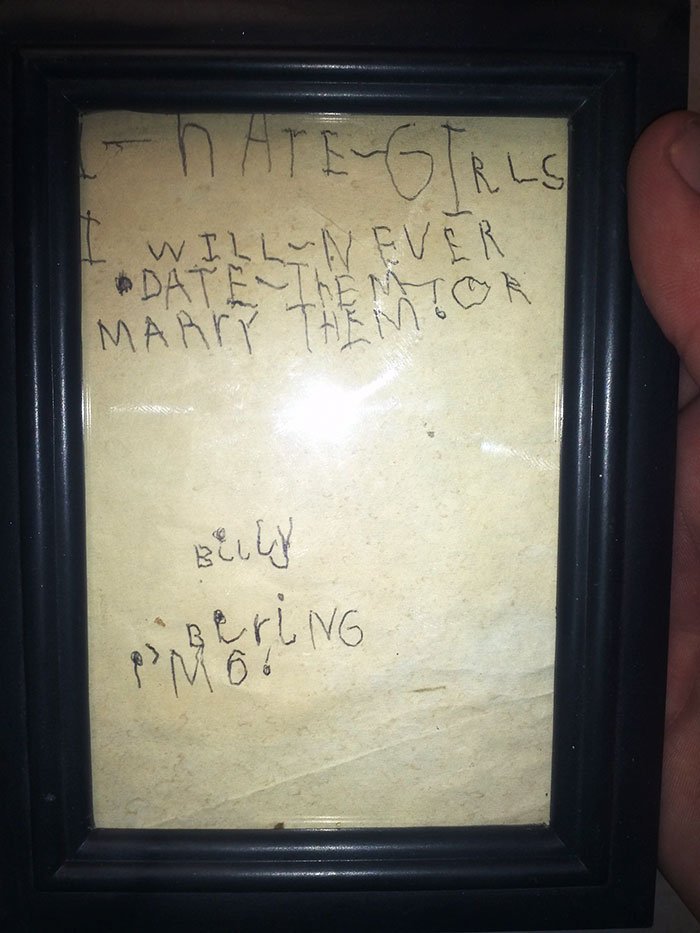 I-hATE-GIRLS
I WILL-NEVER
DATE-ThEM!OR
MARrY THEM!
BiLLy
BerliNG
I'M 6!